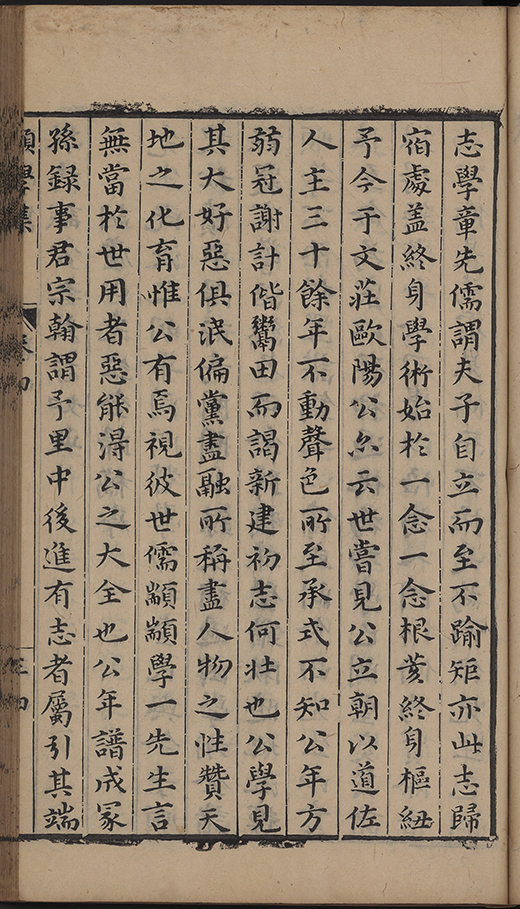 志學章先儒謂夫子自立而至不踰矩亦此志歸
宿處盖終身學術始於一念一念根荄終身樞紐
予今于文莊歐陽公亦云世嘗見公立朝以道佐
人主三十餘年不動聲色所至承式不知公年方
弱冠謝計偕鬻田而謁新建初志何壯也公學見
其大好惡俱泯偏黨盡融所稱盡人物之性贊天
地之化育惟公有焉視彼世儒顓顓學一先生言
無當於世用者惡能得公之大全也公年譜成冡
孫録事君宗翰謂予里中後進有志者屬引其端
願學集
卷四